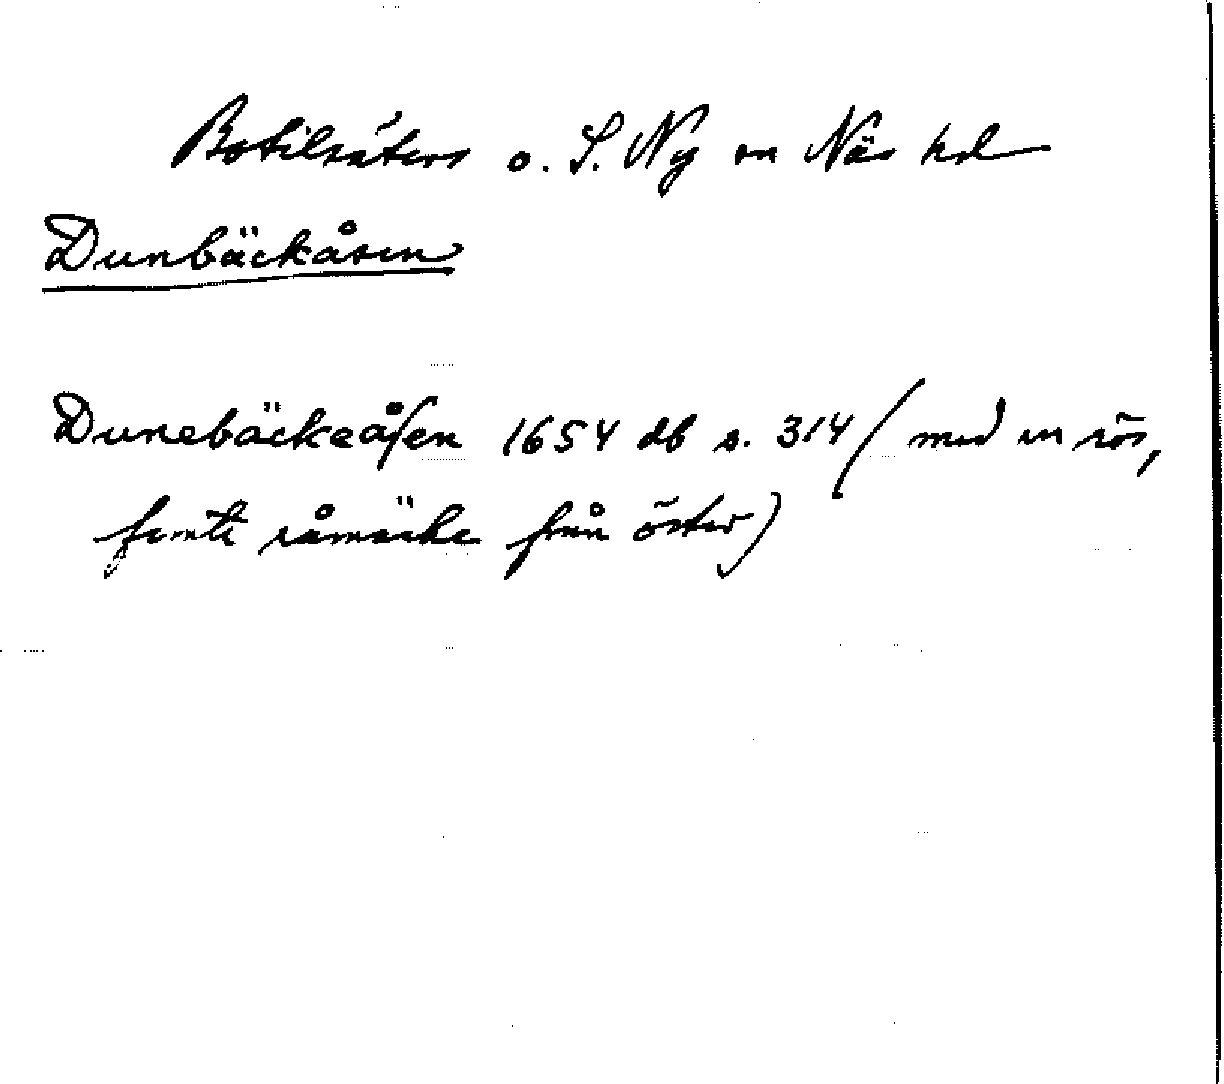 Botilsäters o. S. Ny sn Näs hd
Dunbäckåsen
Dunebäckeåſen 1654 db s. 314 (med en rös,
femte råmärke från öster)